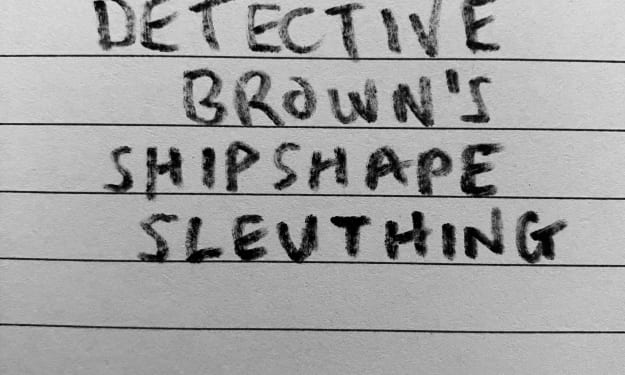 DETECTIVE
BROWN'S
SHIPSHAPE
SLEUTHING